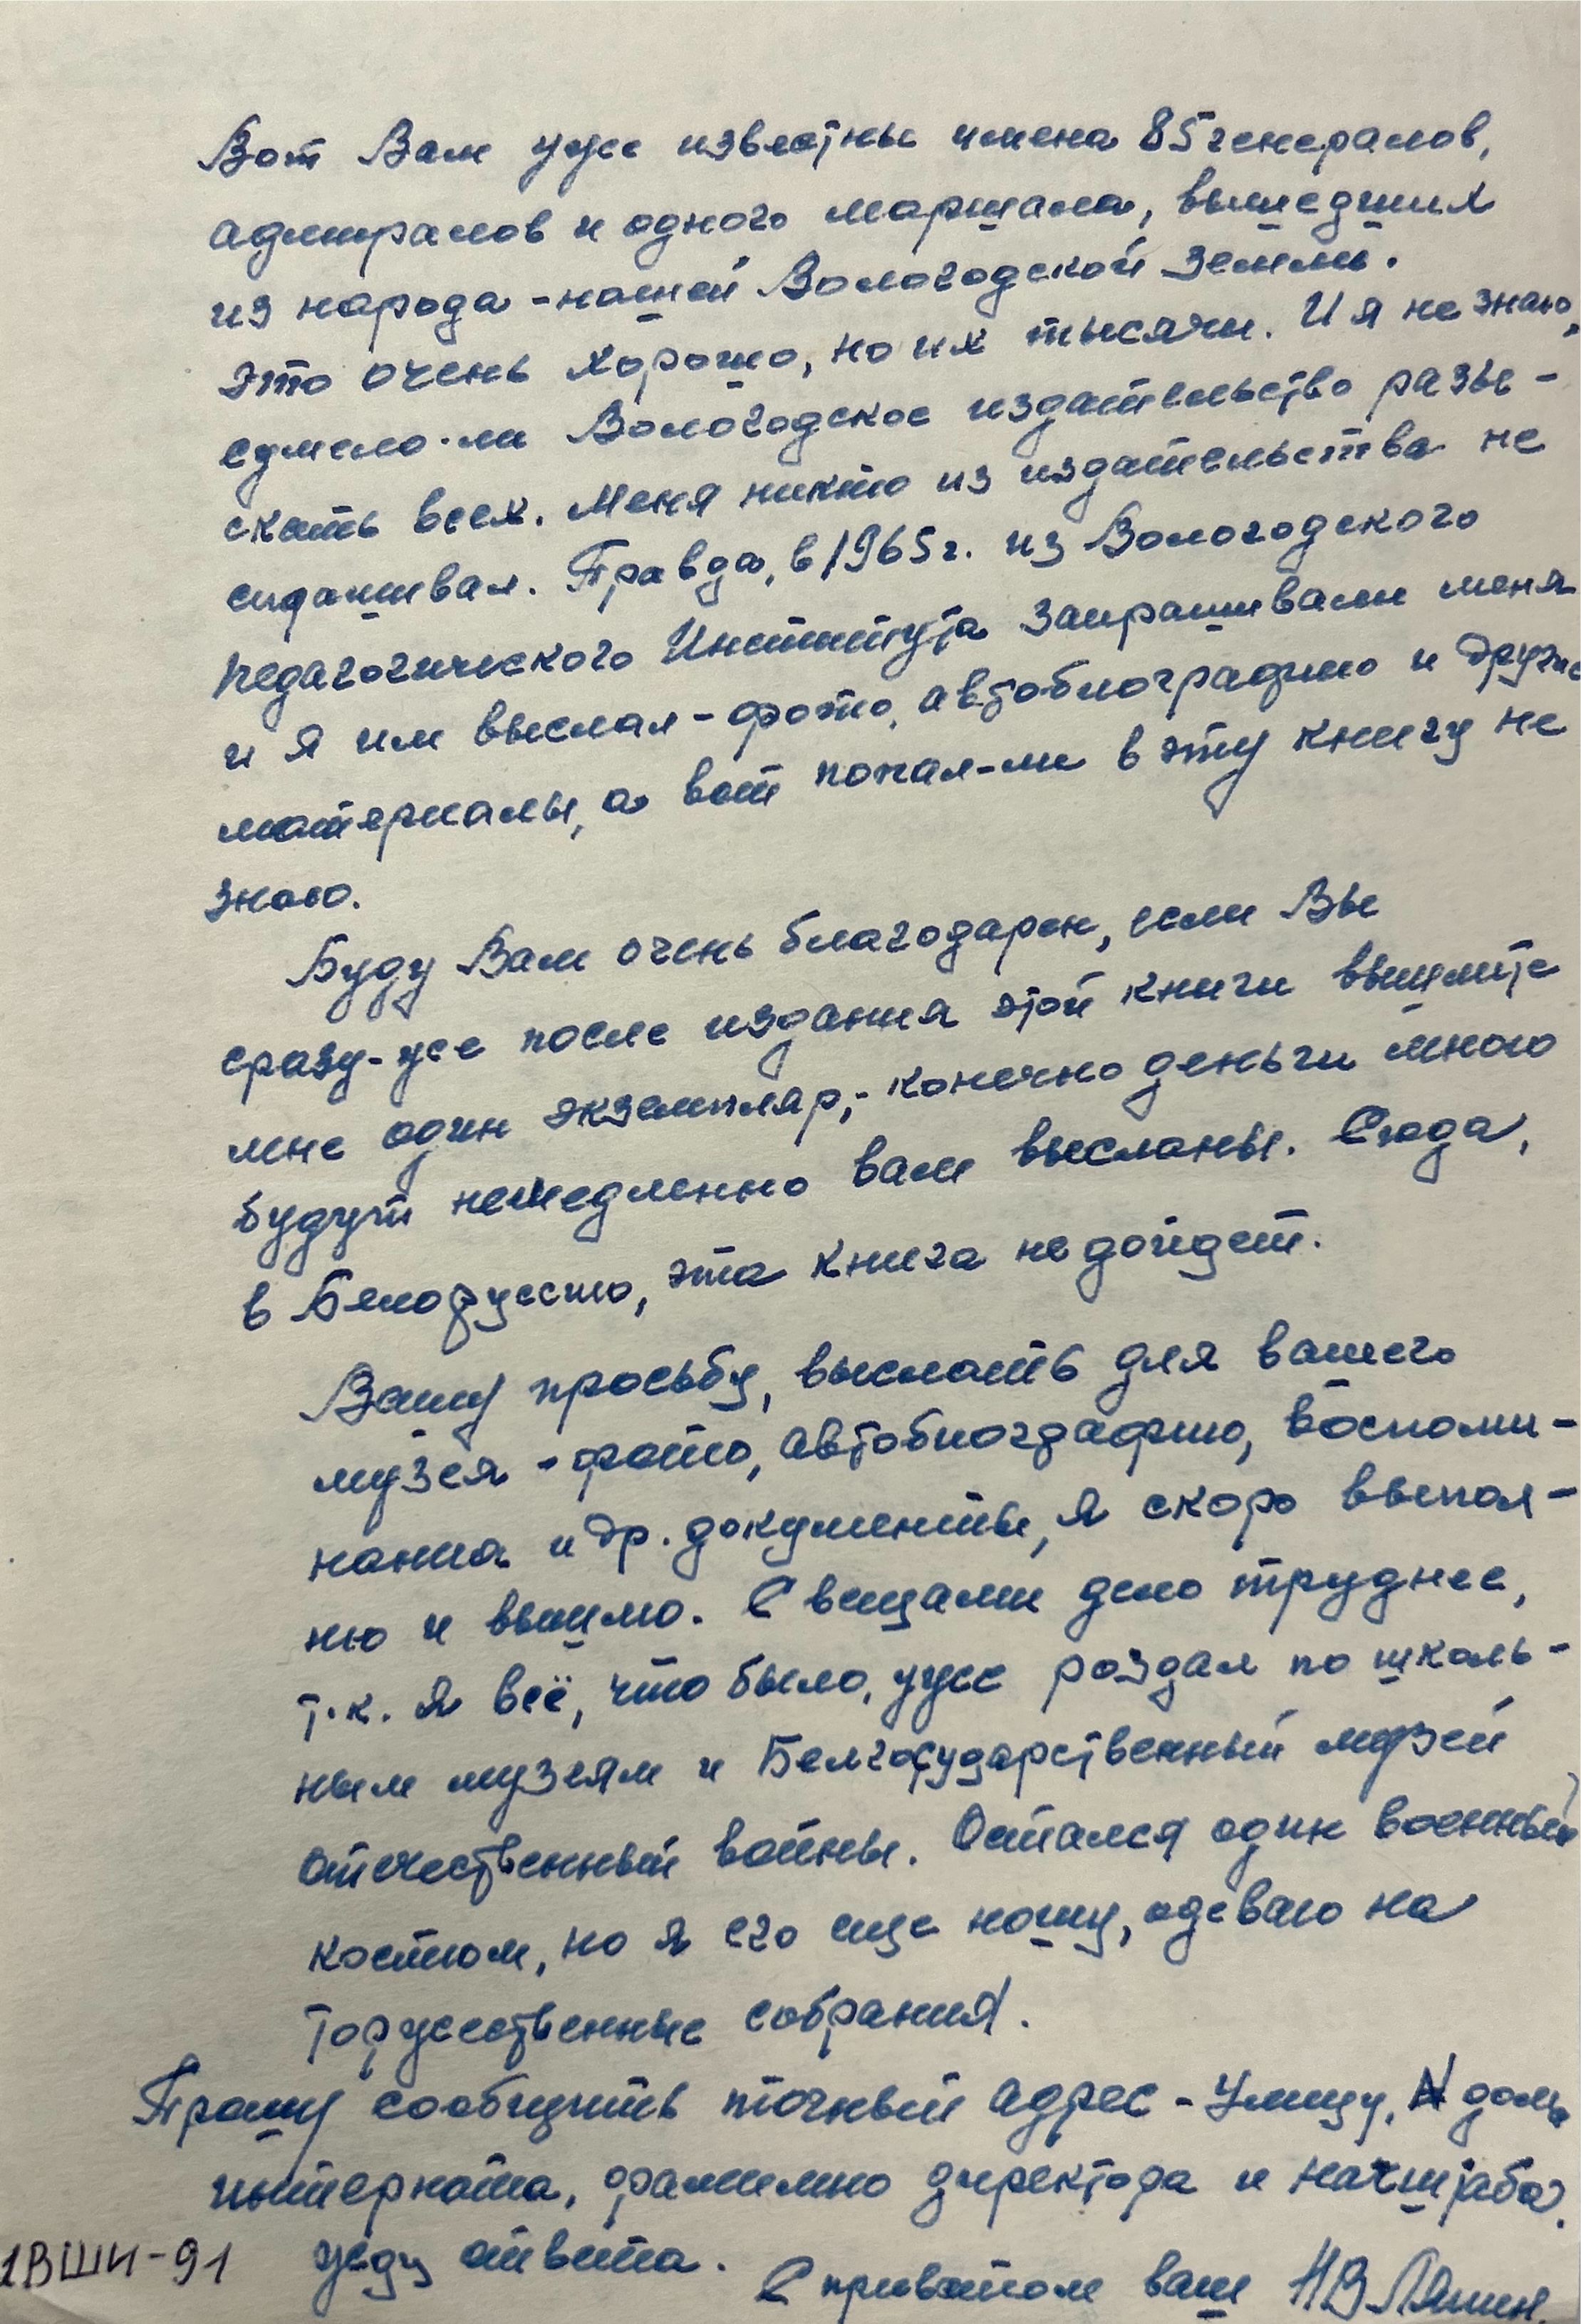 Вот Вам уже известны имена 85 генералов,
адмиралов и одного маршала, вышедших
из народа - нашей Вологодской земли.
Это очень хорошо, но их тысячи. И я не знаю,
сумело-ли Вологодское издательство разы-
скать всех. Меня никто из издательства не
спрашивал. Правда, в 1965 г. из Вологодского
педагогического Института запрашивали меня
и я им выслал - фото, автобиографию и другие
материалы, а вот попал-ли в эту книгу не
знаю.
Буду Вам очень благодарен, если Вы
сразу-же после издания этой книги вышлите
мне один экземпляр, - конечно деньги мною
будут немедленно вам высланы. Сюда,
в Белоруссию, эта книга не дойдет.
Вашу просьбу, выслать для вашего
музея - фото, автобиографию, воспоми-
нания и др. документы, я скоро выпол-
ню и вышлю. С вещами дело труднее,
т.к. я всё, что было, уже роздал по школь-
ным музеям и Белгосударственный музей
Отечественный войны. Остался один военный
костюм, но я его еще ношу, одеваю на
торжественные собрания.
Прошу сообщить точный адрес - Улицу, N дома
интерната, фамилию директора и начштаба.
жду ответа.
С приветом ваш НВ Ляпин
1ВШИ-91